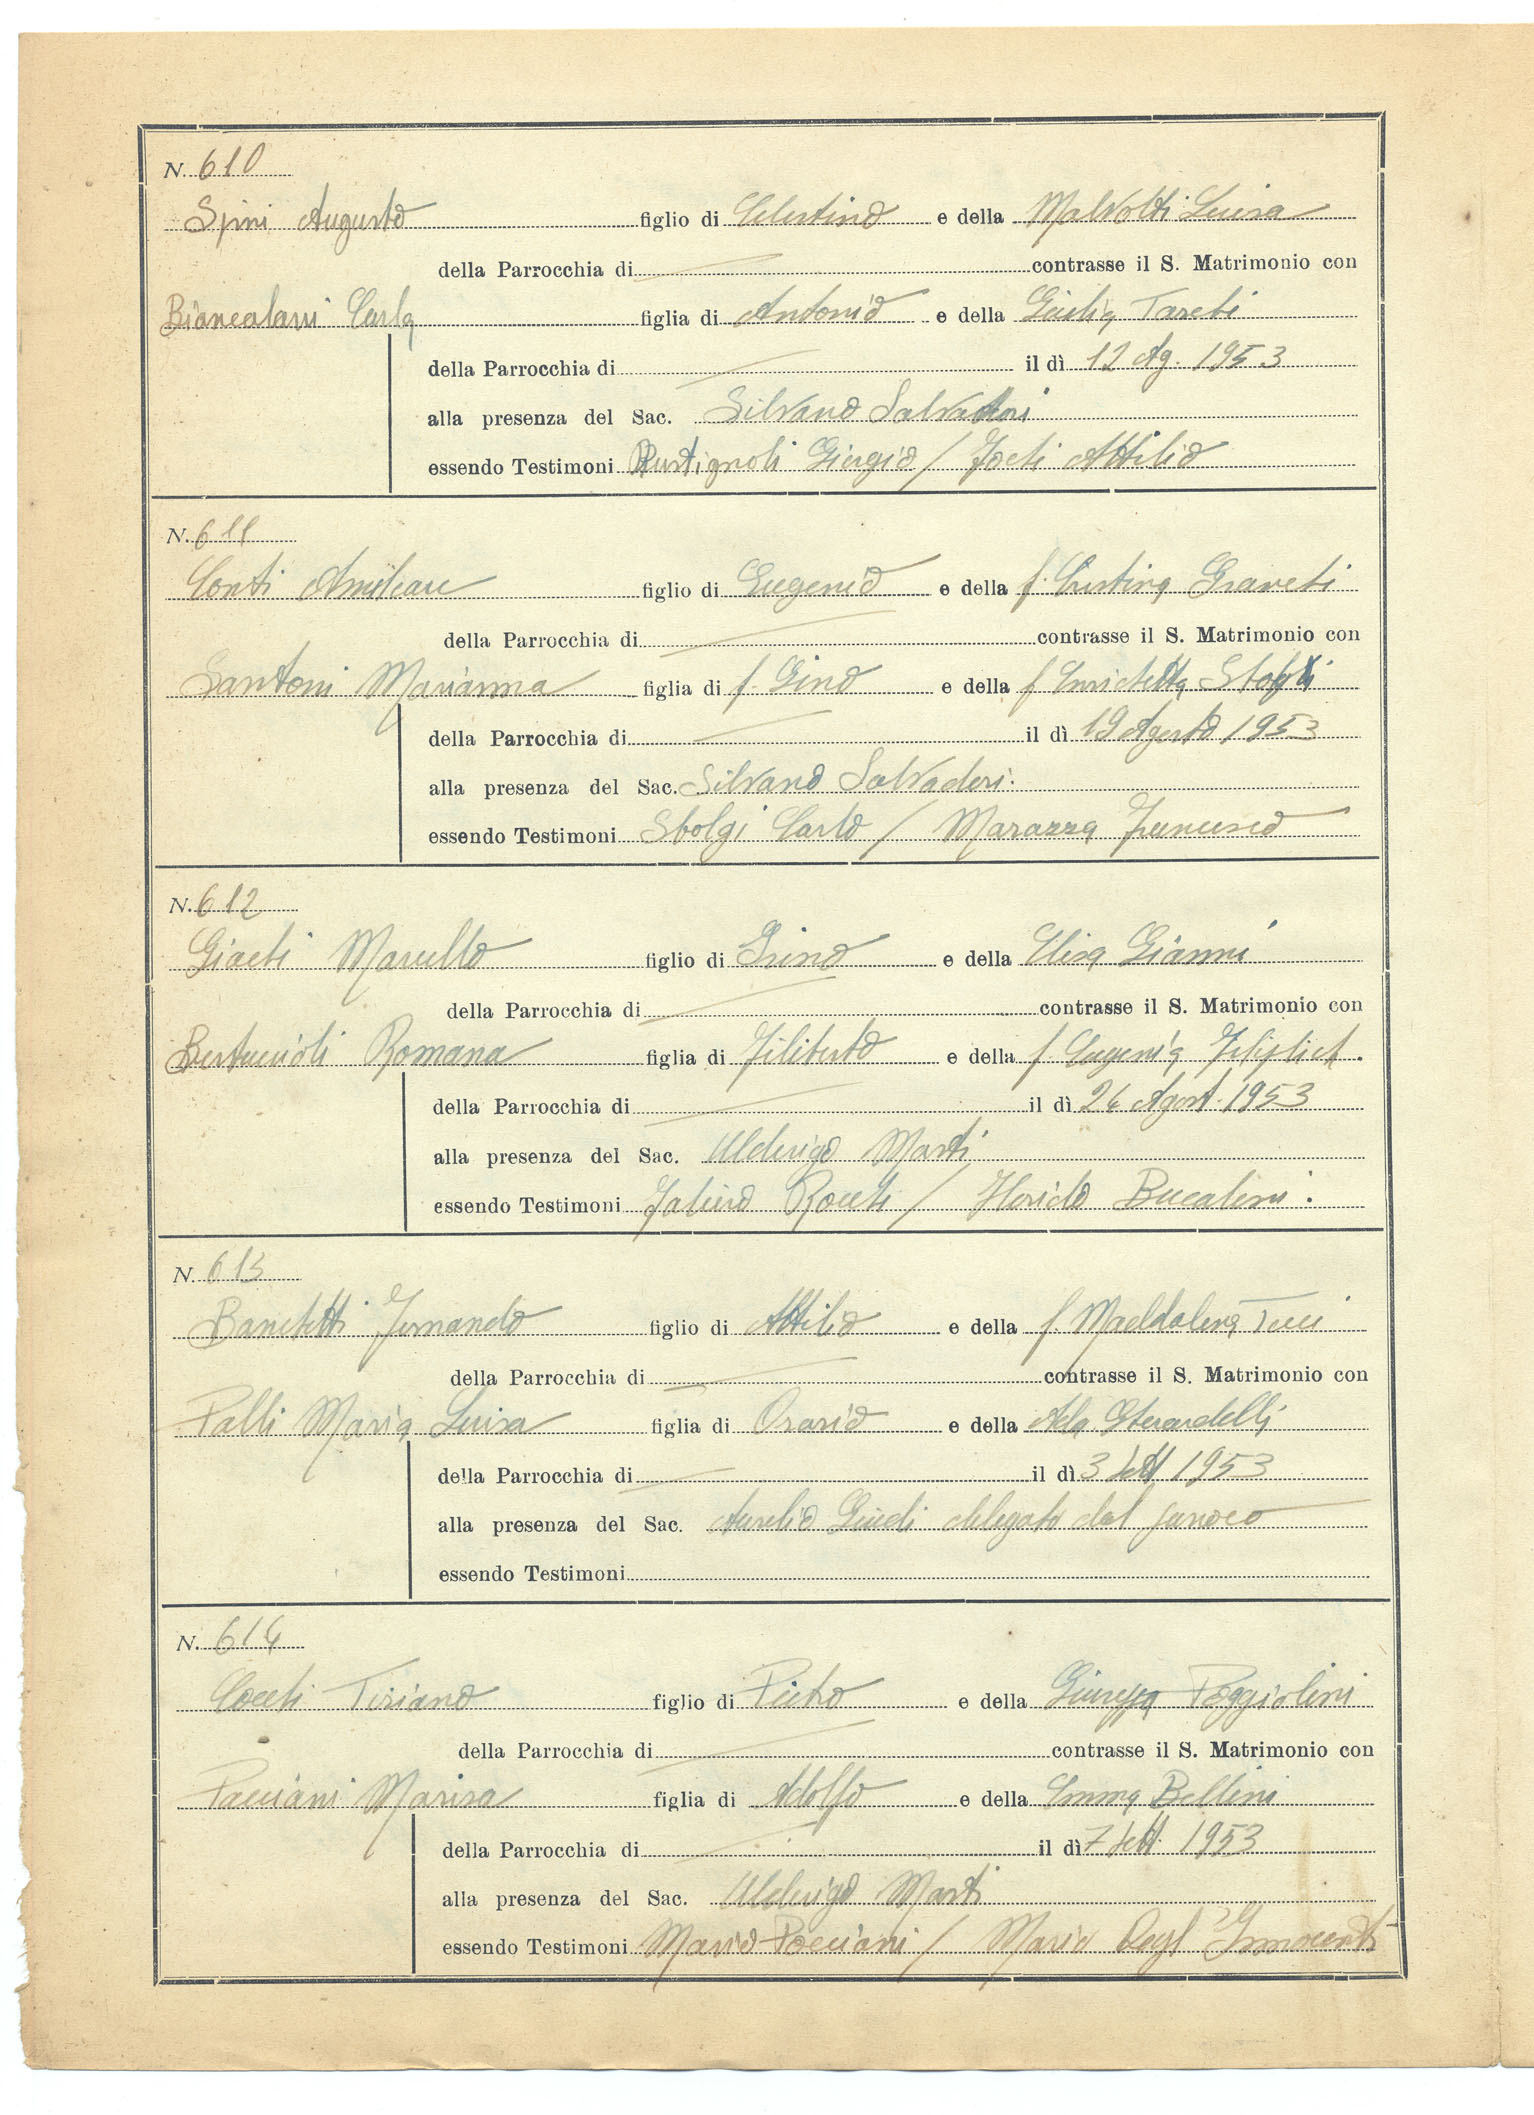 N. 610
Spini Augusto figlio di Celestino e della Malvolti Luisa
della Parrocchia di contrasse il S. Matrimonio con
Biancalani Carla figlia di Antonio e della Giulia
della Parrocchia di il dì 12 Ag. 1953
alla presenza del Sac. Silvano Salvadori
essendo Testimoni Rustignoli Giorgio / Attilio
N. 611
Conti Amilcare figlio di Eugenio e della f.
della Parrocchia di contrasse il S. Matrimonio con
Santoni Marianna figlia di f. Gino e della f. Enrichetta
della Parrocchia di il dì 19 Agosto 1953
alla presenza del Sac. Silvano Salvadori.
essendo Testimoni Sbolgi Carlo / Marazza Francesco
N. 612
Marcello figlio di e della Elisa Gianni
della Parrocchia di contrasse il S. Matrimonio con
Bertaccioli Romana figlia di Filiberto e della f. Eugenia
della Parrocchia di il dì Agost. 1953
alla presenza del Sac. Ulderigo Masti
essendo Testimoni / Bucaleni.
N. 613
Banchetti Fernando figlio di Attilio e della f. Maddalena Tucci
della Parrocchia di contrasse il S. Matrimonio con
Palli Maria Luisa figlia di Orazio e della Ada Gherardelli
della Parrocchia di il dì 3 Sett 1953
alla presenza del Sac. Aurelio Guidi delegato dal parroco
essendo Testimoni
N. 614
Tiziano figlio di Pietro e della Giuseppa Poggiolini
della Parrocchia di contrasse il S. Matrimonio con
Pacciani Marisa figlia di Adolfo e della Emma Bellini
della Parrocchia di il dì 7 Sett. 1953
alla presenza del Sac. Ulderigo Masti
essendo Testimoni Mario Pacciani / Mario Degl'Innocenti